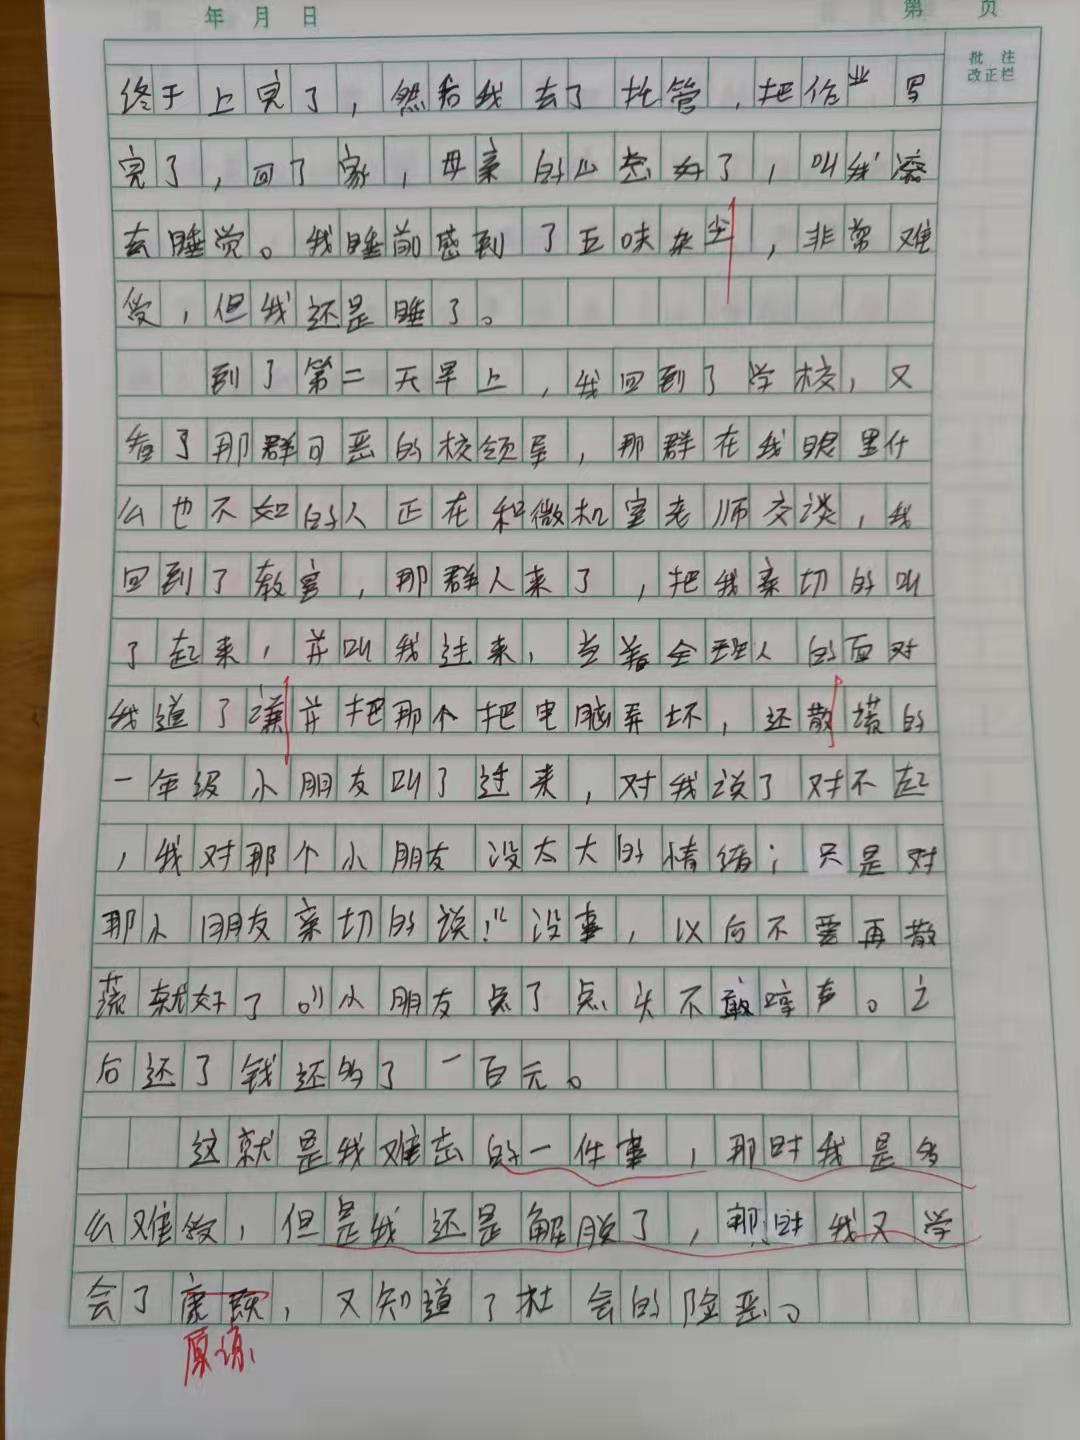 年 月 日 第 页
批 注
改正栏
终于上完了，然后我去了托管，把作业写
完了，回了家，母亲的心态好了，叫我滚
去睡觉。我睡前感到了五味杂尘，非常难
受，但我还是睡了。
到了第二天早上，我回到了学校，又
看了那群可恶的校领导，那群在我眼里什
么也不如的人正在和微机室老师交谈，我
回到了教室，那群人来了，把我亲切的叫
了起来，并叫我过来，当着全班人的面对
我道了谦并把那个把电脑弄坏，还散谎的
一年级小朋友叫了过来，对我说了对不起
，我对那个小朋友没太大的情绪；只是对
那小朋友亲切的说！“没事，以后不要再散
谎就好了。”小朋友点了点头不敢啍声。之
后还了钱还多了一百元。
这就是我难忘的一件事，那时我是多
么难受，但是我还是解脱了，那时我又学
会了，又知道了社会的险恶。
原谅